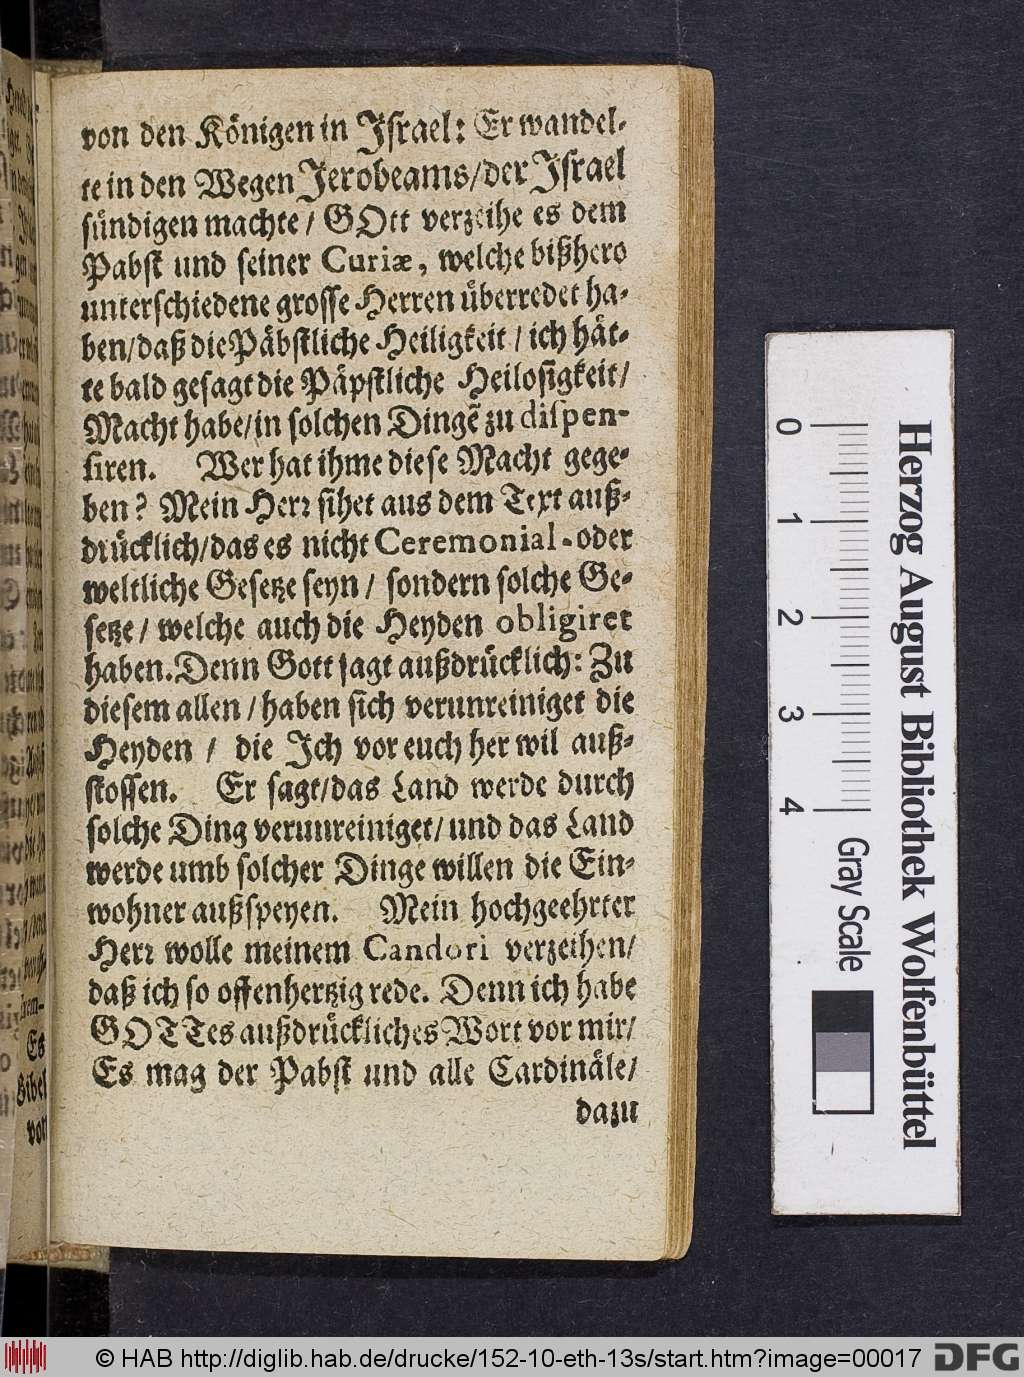 von den Königen in Jsrael: Er wandel-
te in den Wegen Jerobeams/der Jsrael
sündigen machte/ GOtt verzeihe es dem
Pabst und seiner Curiæ, welche bißhero
unterschiedene grosse Herren überredet ha-
ben/daß die Päbstliche Heiligkeit/ ich hät-
te bald gesagt die Päpstliche Heilosigkeit/
Macht habe/in solchen Dingẽ zu dispen-
siren. Wer hat ihme diese Macht gege-
ben? Mein Herr sihet aus dem Text auß-
drücklich/das es nicht Ceremonial-oder
weltliche Gesetze seyn/ sondern solche Ge-
setze/ welche auch die Heyden obligiret
haben. Denn Gott sagt außdrücklich: Zu
diesem allen/haben sich verunreiniget die
Heyden/ die Jch vor euch her wil auß-
stossen. Er sagt/das Land werde durch
solche Ding verunreiniget/und das Land
werde umb solcher Dinge willen die Ein-
wohner außspeyen. Mein hochgeehrter
Herr wolle meinem Candori verzeihen/
daß ich so offenhertzig rede. Denn ich habe
GOTTes außdrückliches Wort vor mir/
Es mag der Pabst und alle Cardinäle/
dazu
Es
Bibel
von
0 1 2 3 4
Gray Scale
Herzog August Bibliothek Wolfenbüttel
© HAB http://diglib.hab.de/drucke/152-10-eth-13s/start.htm?image=00017
DFG